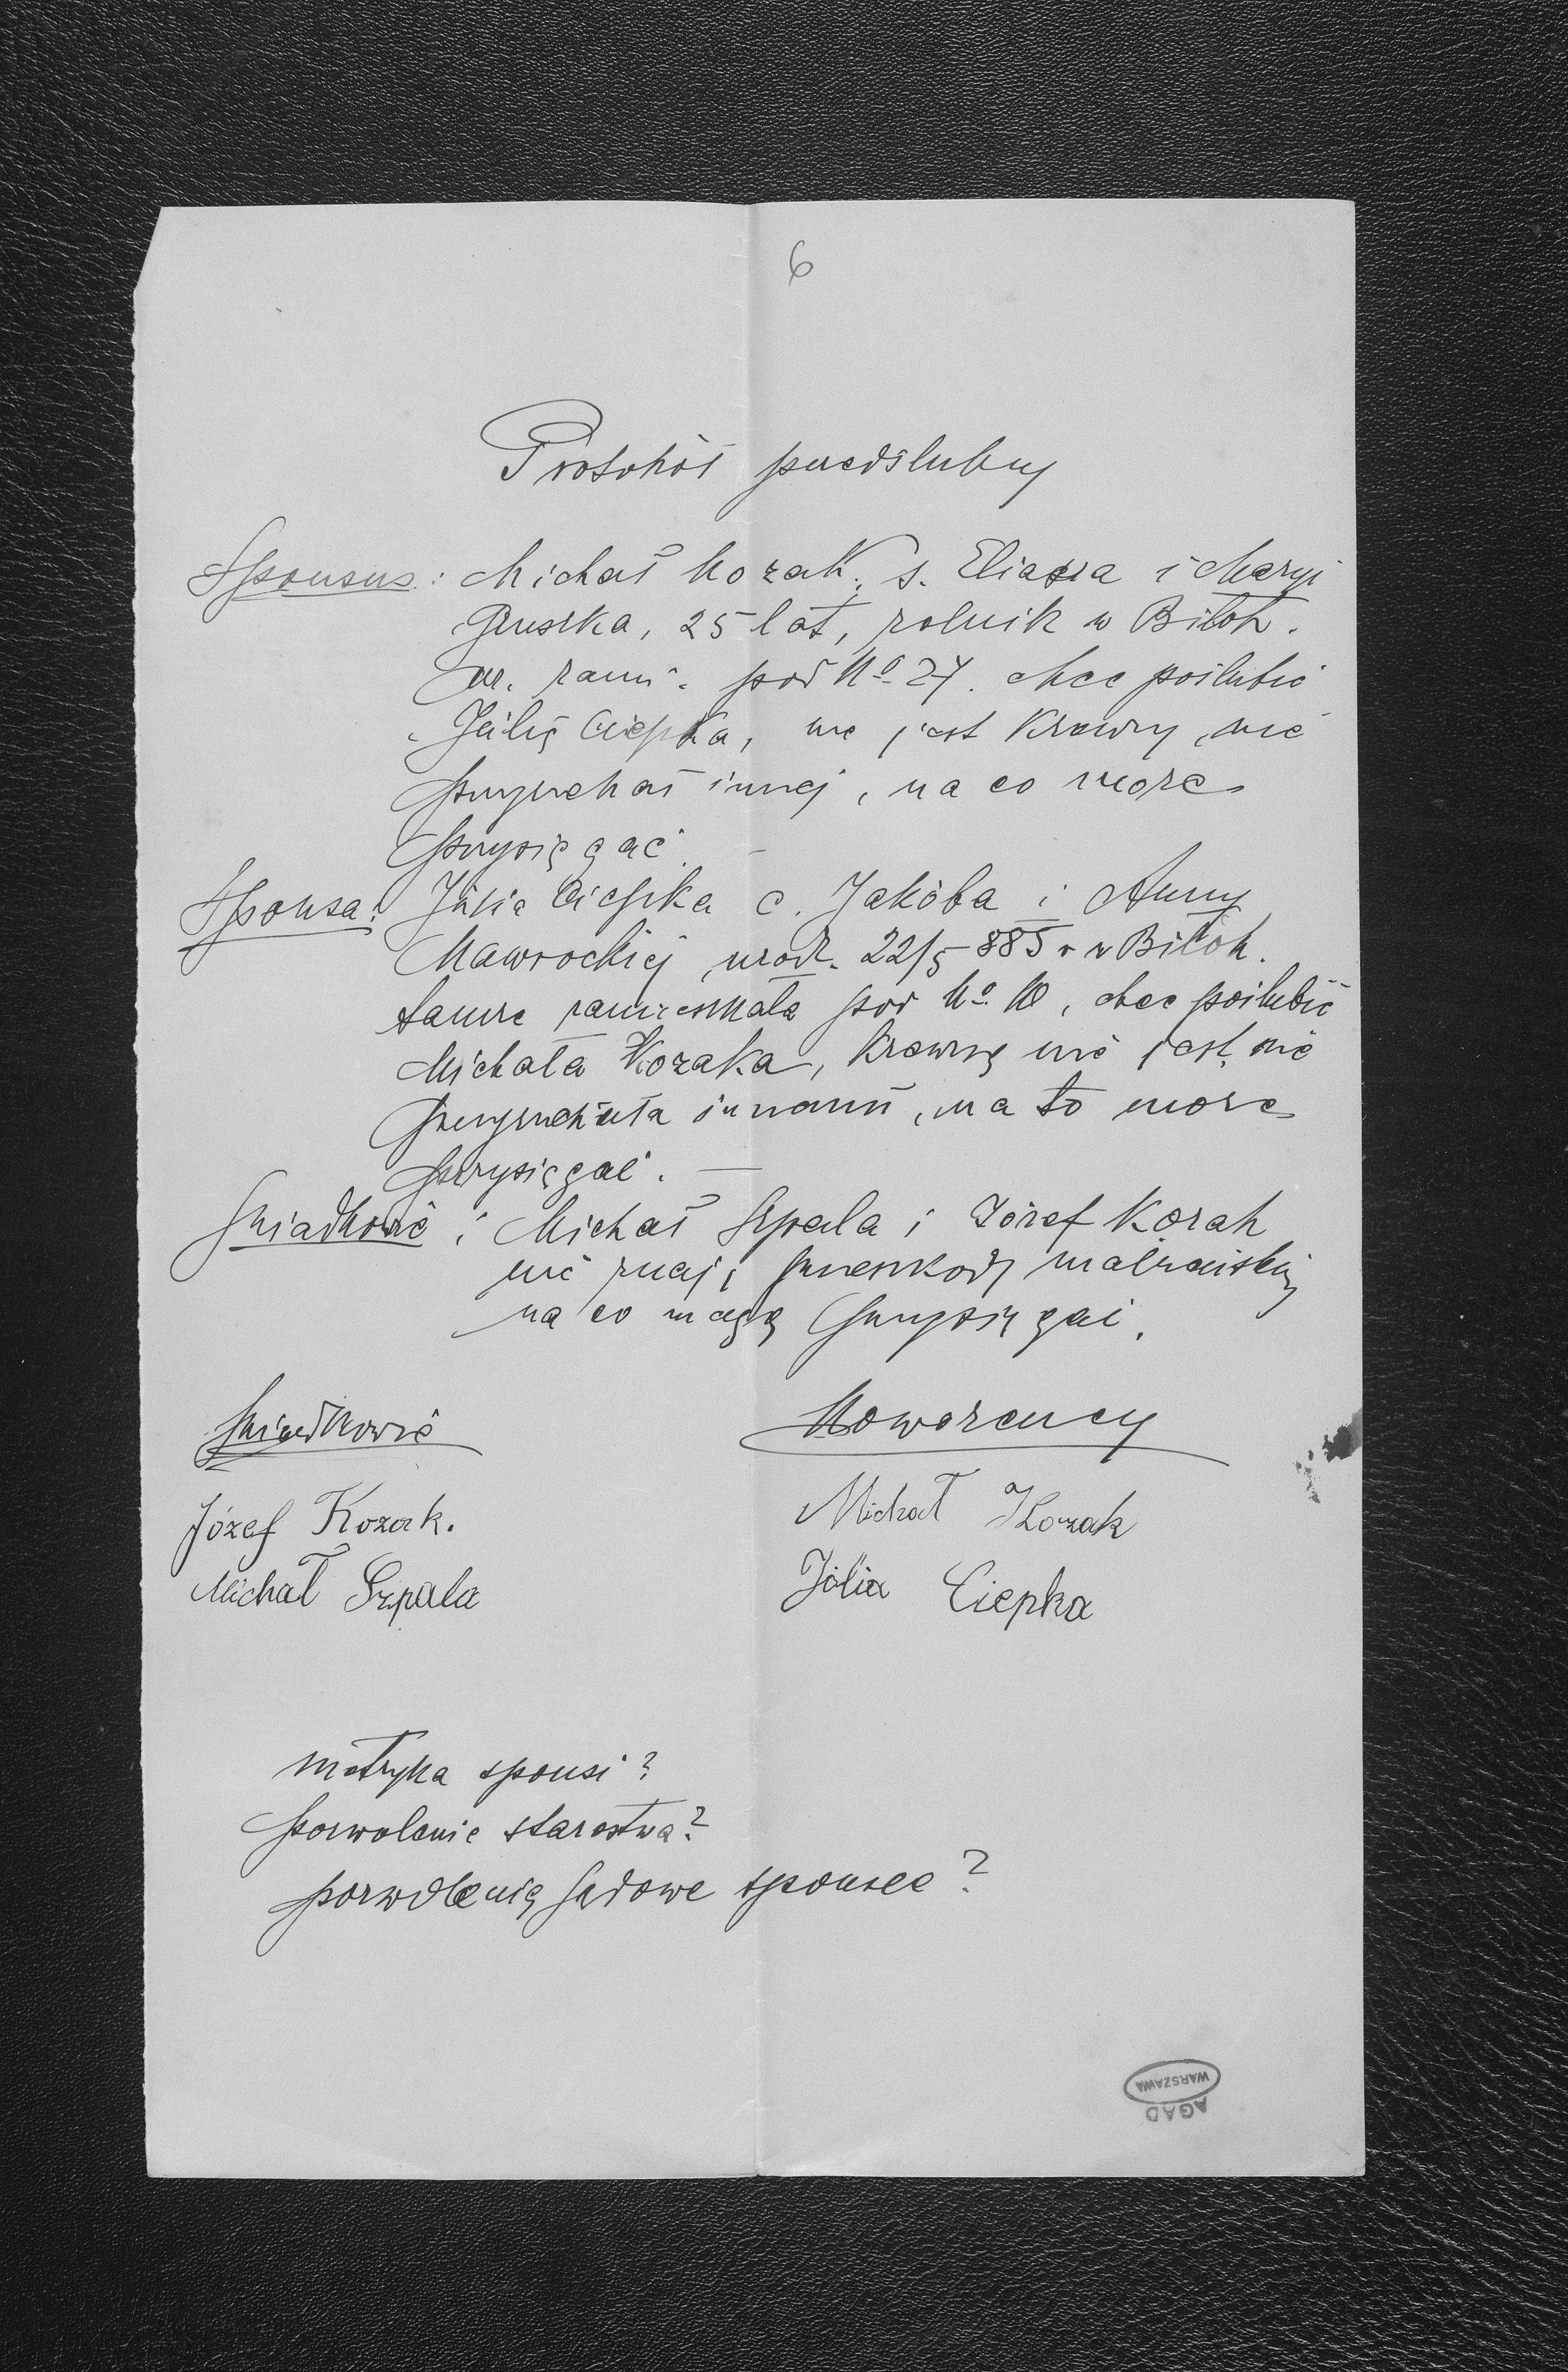 6
Protokół przedślubny
Sponsus: Michał Kozak, s. Eliasza i Maryi
Gruszka, 25 lat, rolnik w Biłoh.
zam. pod No 27. chce poślubić
Julię Ciepka, nie jest krewny, nie
przyrzekał innej, na co może
przysięgać. —
Sponsa: Julia Ciepka c. Jakóba i Anny
Nawrockiej, urodz. 22/5 885 r w Biłoh.
tamże zamieszkała pod No. 10, chce poślubić
Michała Kozaka, krewną nie jest, nie
przyrzekała innemu, na to może
przysięgać. —
Świadkowie: Michał Szpala i Józef Kozak
nie znają przeszkody małżeńskiej
na co mogą przysięgać.
Świadkowie
Nowożeńcy
Józef Kozak.
Michał Szpala
Michał Kozak
Jólia Ciepka
metryka sponsi?
pozwolenie starostwa?
pozwolenie sądowe sponsae?
AGAD
WARSZAWA